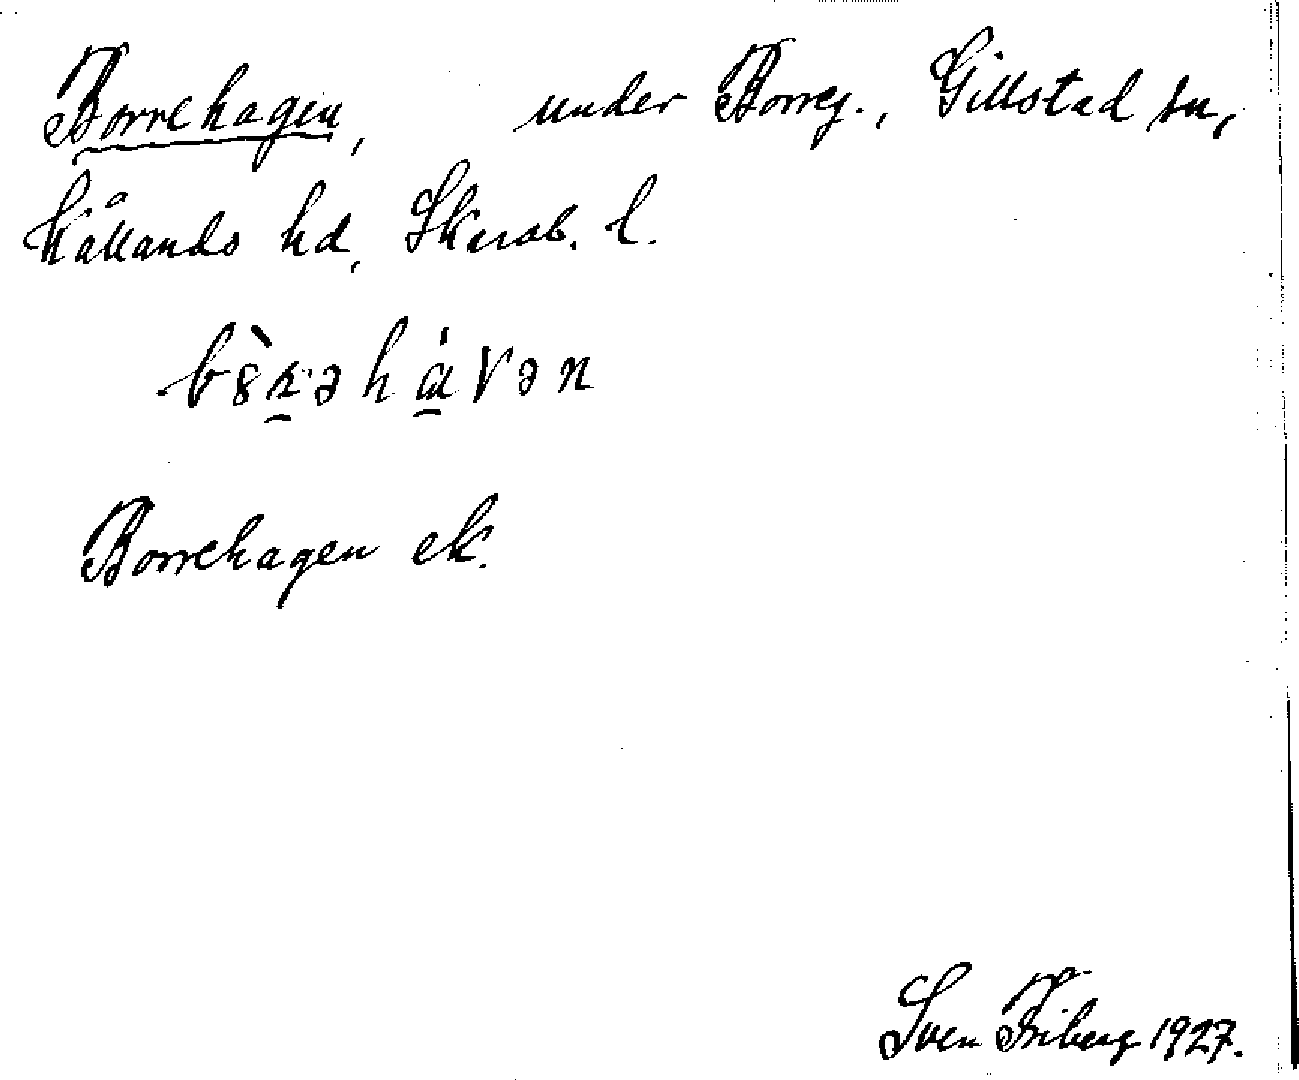 Borrehagen, under Borreg., Gillstad sn,
Kållands hd, Skarab. l.
b8̀ꭆəhάvən
Borrehagen ek.
Sven Friberg 1927.